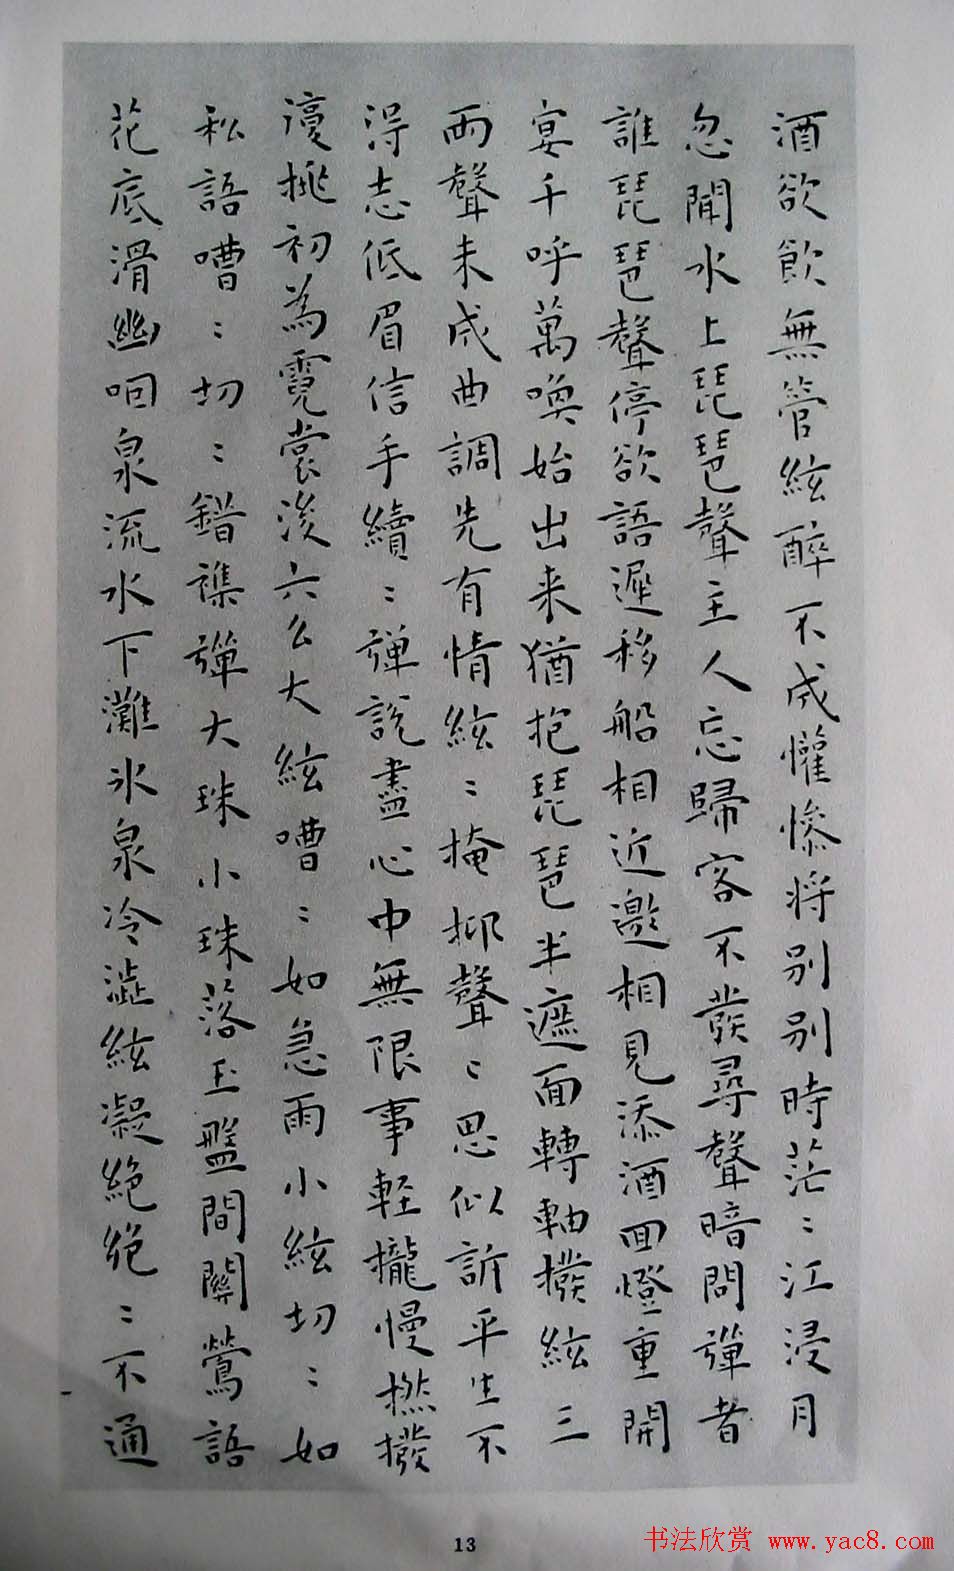 酒欲飲無管絃醉不成懽慘將別別時茫〻江浸月
忽聞水上琵琶聲主人忘歸客不發尋聲暗問彈者
誰琵琶聲停欲語遲移船相近邀相見添酒回燈重開
宴千呼萬喚始出来猶抱琵琶半遮面轉軸撥絃三
兩聲未成曲調先有情絃〻掩抑聲〻思似訴平生不
得志低眉信手續〻彈說盡心中無限事輕攏慢撚撥
復挑初為霓裳後六么大絃嘈〻如急雨小絃切〻如
私語嘈〻切〻錯雜彈大珠小珠落玉盤間關鶯語
花底滑幽咽泉流水下灘氷泉冷澀絃凝絕絕〻不通
13
书法欣赏 www.yac8.com